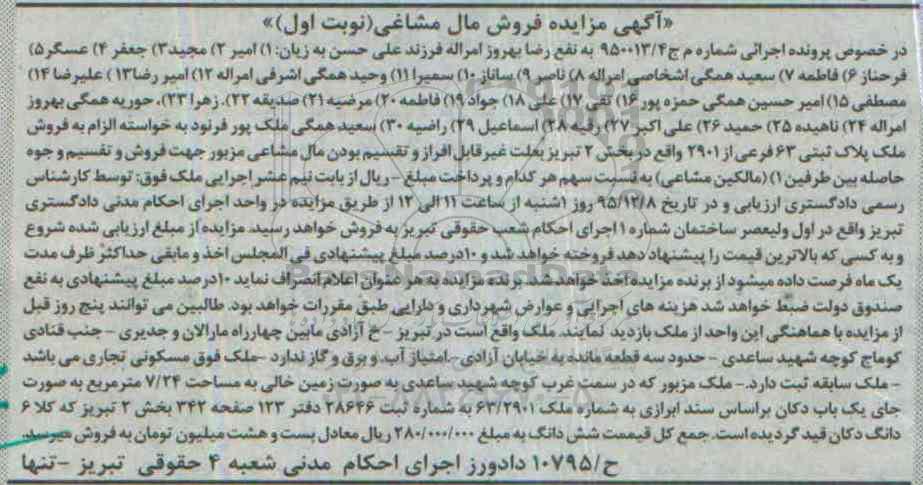 «آگهی مزایده فروش مال مشاعی(نوبت اول)»
در خصوص پرونده اجرائی شماره م ج۹۵۰۰۱۳/۴ به نفع رضا بهروز امراله فرزند علی حسن به زیان: ۱) امیر ۲) مجید۳) جعفر ۴) عسگر۵)
فرحناز ۶) فاطمه ۷) سعید همگی اشخاصی امراله ۸) ناصر ۹) ساناز ۱۰) سمیرا ۱۱) وحید همگی اشرفی امراله ۱۲) امیر رضا۱۳) علیرضا ۱۴)
مصطفی ۱۵) امیر حسین همگی حمزه پور ۱۶) تقی ۱۷) علی ۱۸) جواد ۱۹) فاطمه ۲۰) مرضیه ۲۱) صدیقه ۲۲. زهرا ۲۳). حوریه همگی بهروز
امراله ۲۴) ناهیده ۲۵) حمید ۲۶) علی اکبر ۲۷) رقیه ۲۸) اسماعیل ۲۹) راضیه ۳۰) سعید همگی ملک پور فرنود به خواسته الزام به فروش
ملک پلاک ثبتی ۶۳ فرعی از ۲۹۰۱ واقع در بخش ۲ تبریز بعلت غیر قابل افراز و تقسیم بودن مال مشاعی مزبور جهت فروش و تقسیم و جوه
حاصله بین طرفین ۱) (مالکین مشاعی) به نسبت سهم هر کدام و پرداخت مبلغ – ریال از بابت نیم عشر اجرایی ملک فوق: توسط کارشناس
رسمی دادگستری ارزیابی و در تاریخ ۹۵/۱۲/۸ روز ۱شنبه از ساعت ۱۱ الی ۱۲ از طریق مزایده در واحد اجرای احکام مدنی دادگستری
تبریز واقع در اول ولیعصر ساختمان شماره ۱ اجرای احکام شعب حقوقی تبریز به فروش خواهد رسید. مزایده از مبلغ ارزیابی شده شروع
و به کسی که بالاترین قیمت را پیشنهاد دهد فروخته خواهد شد و ۱۰درصد مبلغ پیشنهادی فی المجلس اخذ و مابقی حداکثر ظرف مدت
یک ماه فرصت داده میشود از برنده مزایده اخذ خواهد شد. برنده مزایده به هر عنوان اعلام انصراف نماید ۱۰درصد مبلغ پیشنهادی به نفع
صندوق دولت ضبط خواهد شد هزینه های اجرایی و عوارض شهرداری و دارایی طبق مقررات خواهد بود. طالبین می توانند پنج روز قبل
از مزایده با هماهنگی این واحد از ملک بازدید نمایند. ملک واقع است در تبریز – خ آزادی مابین چهارراه مارالان و جدیری – جنب قنادی
کوماج کوچه شهید ساعدی – حدود سه قطعه مانده به خیابان آزادی – امتیاز آب و برق و گاز ندارد – ملک فوق مسکونی تجاری می باشد
– ملک سابقه ثبت دارد. – ملک مزبور که در سمت غرب کوچه شهید ساعدی به صورت زمین خالی به مساحت ۷/۲۴ مترمربع به صورت
جای یک باب دکان براساس سند ابرازی به شماره ملک ۶۳/۲۹۰۱ به شماره ثبت ۲۸۶۴۶ دفتر ۱۲۳ صفحه ۳۴۲ بخش ۲ تبریز که کلا ۶
دانگ دکان قید گردیده است. جمع کل قیممت شش دانگ به مبلغ ۲۸۰/۰۰۰/۰۰۰ ریال معادل بست و هشت میلیون تومان به فروش میرسد
ح/۱۰۷۹۵ دادورز اجرای احکام مدنی شعبه ۴ حقوقی تبریز –تنها